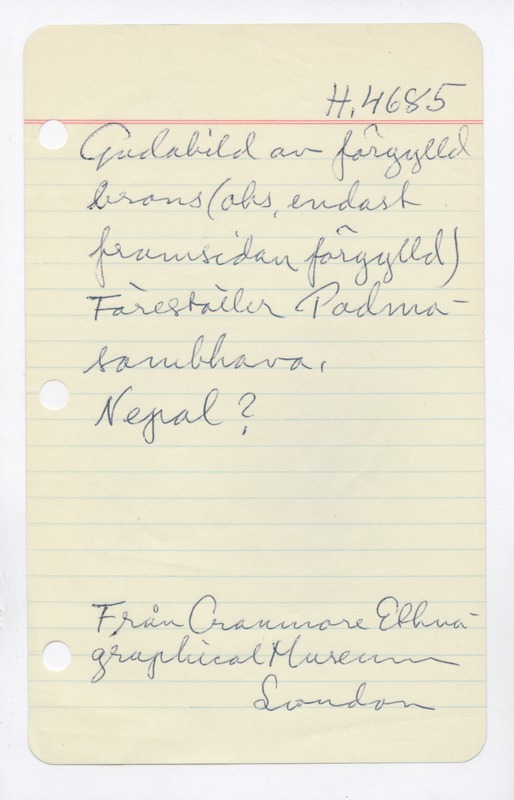 H.4685
Gudabild av förgylld
brons (obs, endast
framsidan förgylld)
Föreställer Padma-
sambhava.
Nepal?
Från Cranmore Ethno-
graphical Museum
London